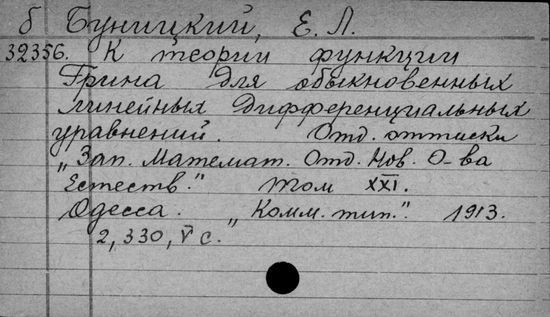 б Буницкий, Е. Л.
32356. К теории функции
Грина для обыкновенных
линейных дифференциальных
уравнений. Отд. оттиски
„Зап. Математ. Отд. Нов. О-ва
Естеств." том XXI.
Одесса. „Комм. тип.". 1913.
2, 330, V с.